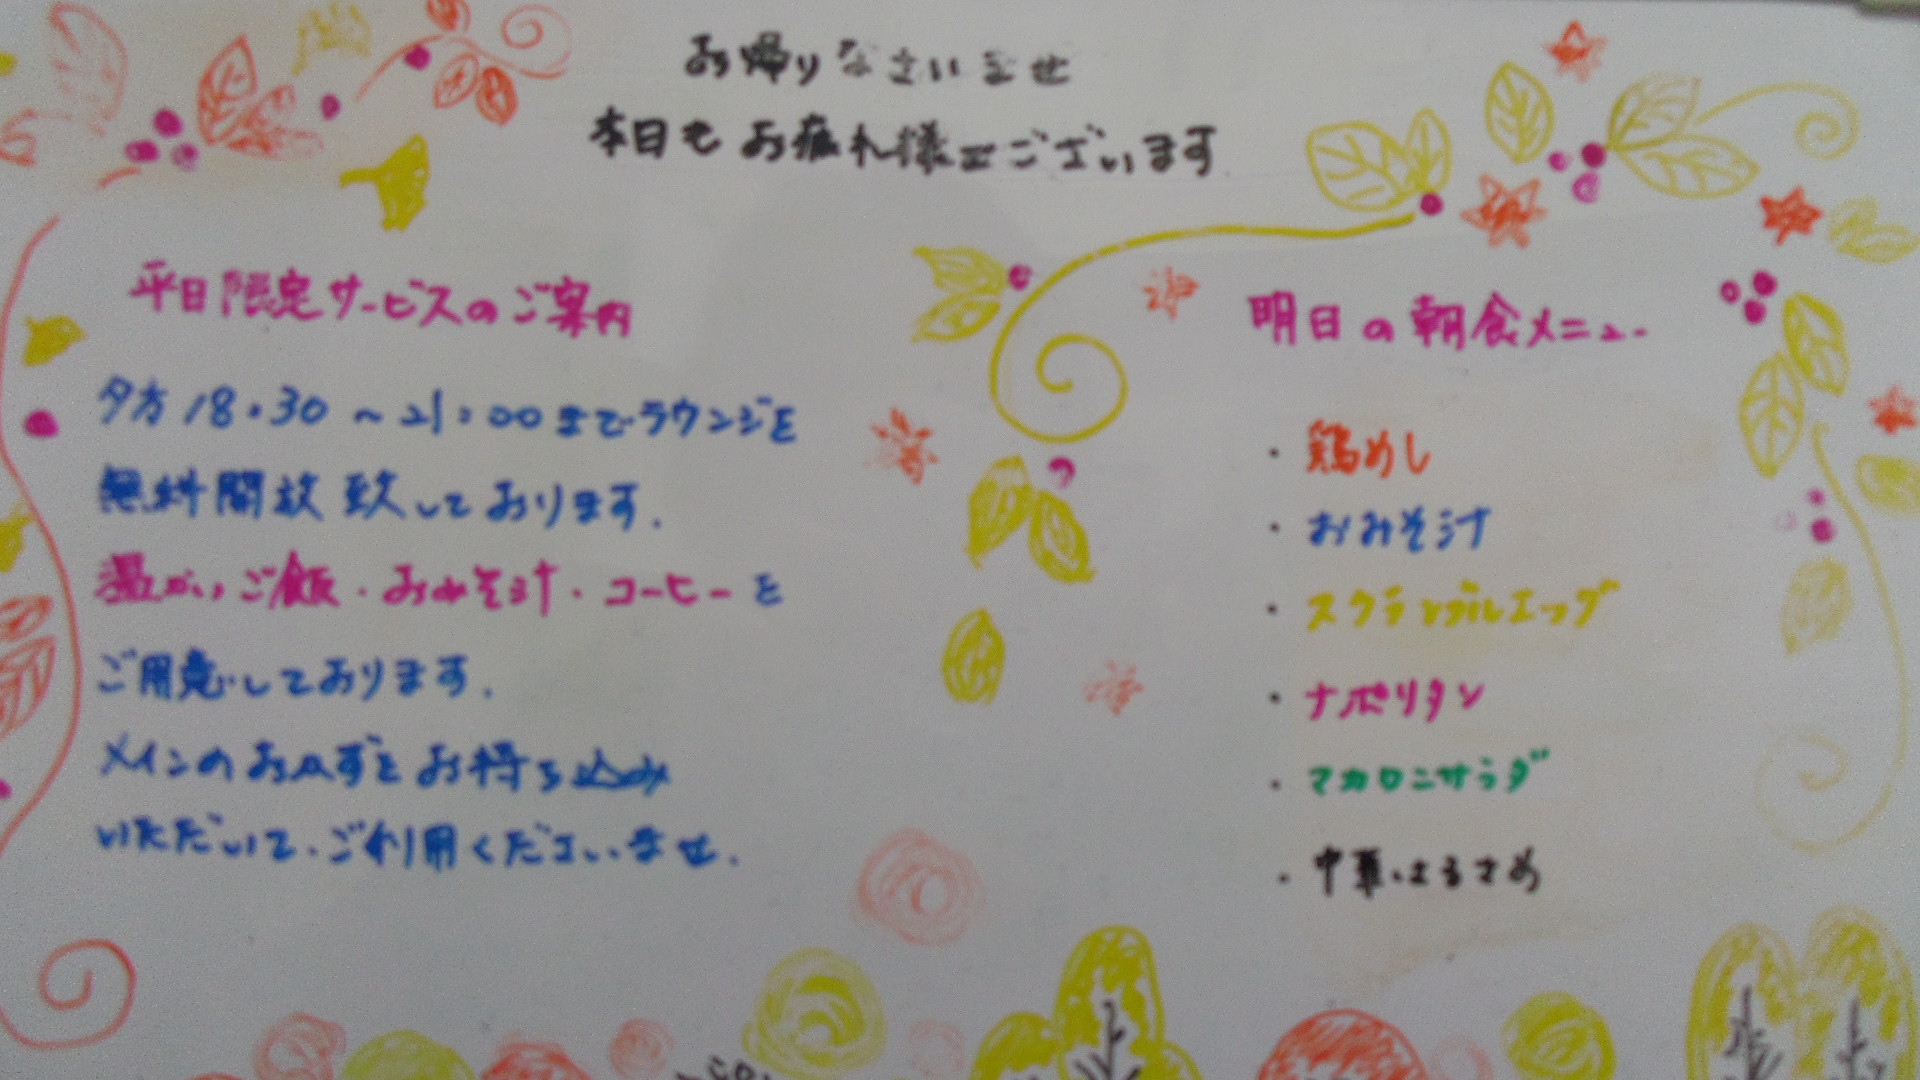 お帰りなさいませ
本日もお疲れ様でございます
平日限定サービスのご案内
夕方18:30～21:00までラウンジを
無料開放致しております.
温かいご飯・おみそ汁・コーヒーを
ご用意しております.
メインのおかずをお持ち込み
いただいて、ご利用くださいませ.
明日の朝食メニュー
・鶏めし
・おみそ汁
・スクランブルエッグ
・ナポリタン
・マカロニサラダ
・中華はるさめ